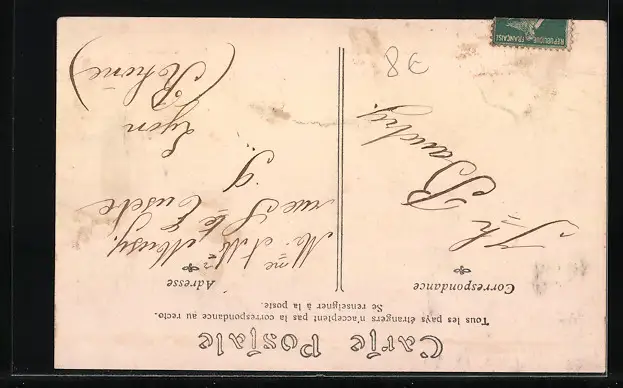 Carte Postale
Tous les pays étrangers n'acceptent pas la correspondance au recto.
Se renseigner à la poste.
Correspondance
Jh Baudry.
38
Adresse
Mme et Mr
rue Ste
9
Lyon
(Rhône)
REPUBLIQUE FRANÇAISE